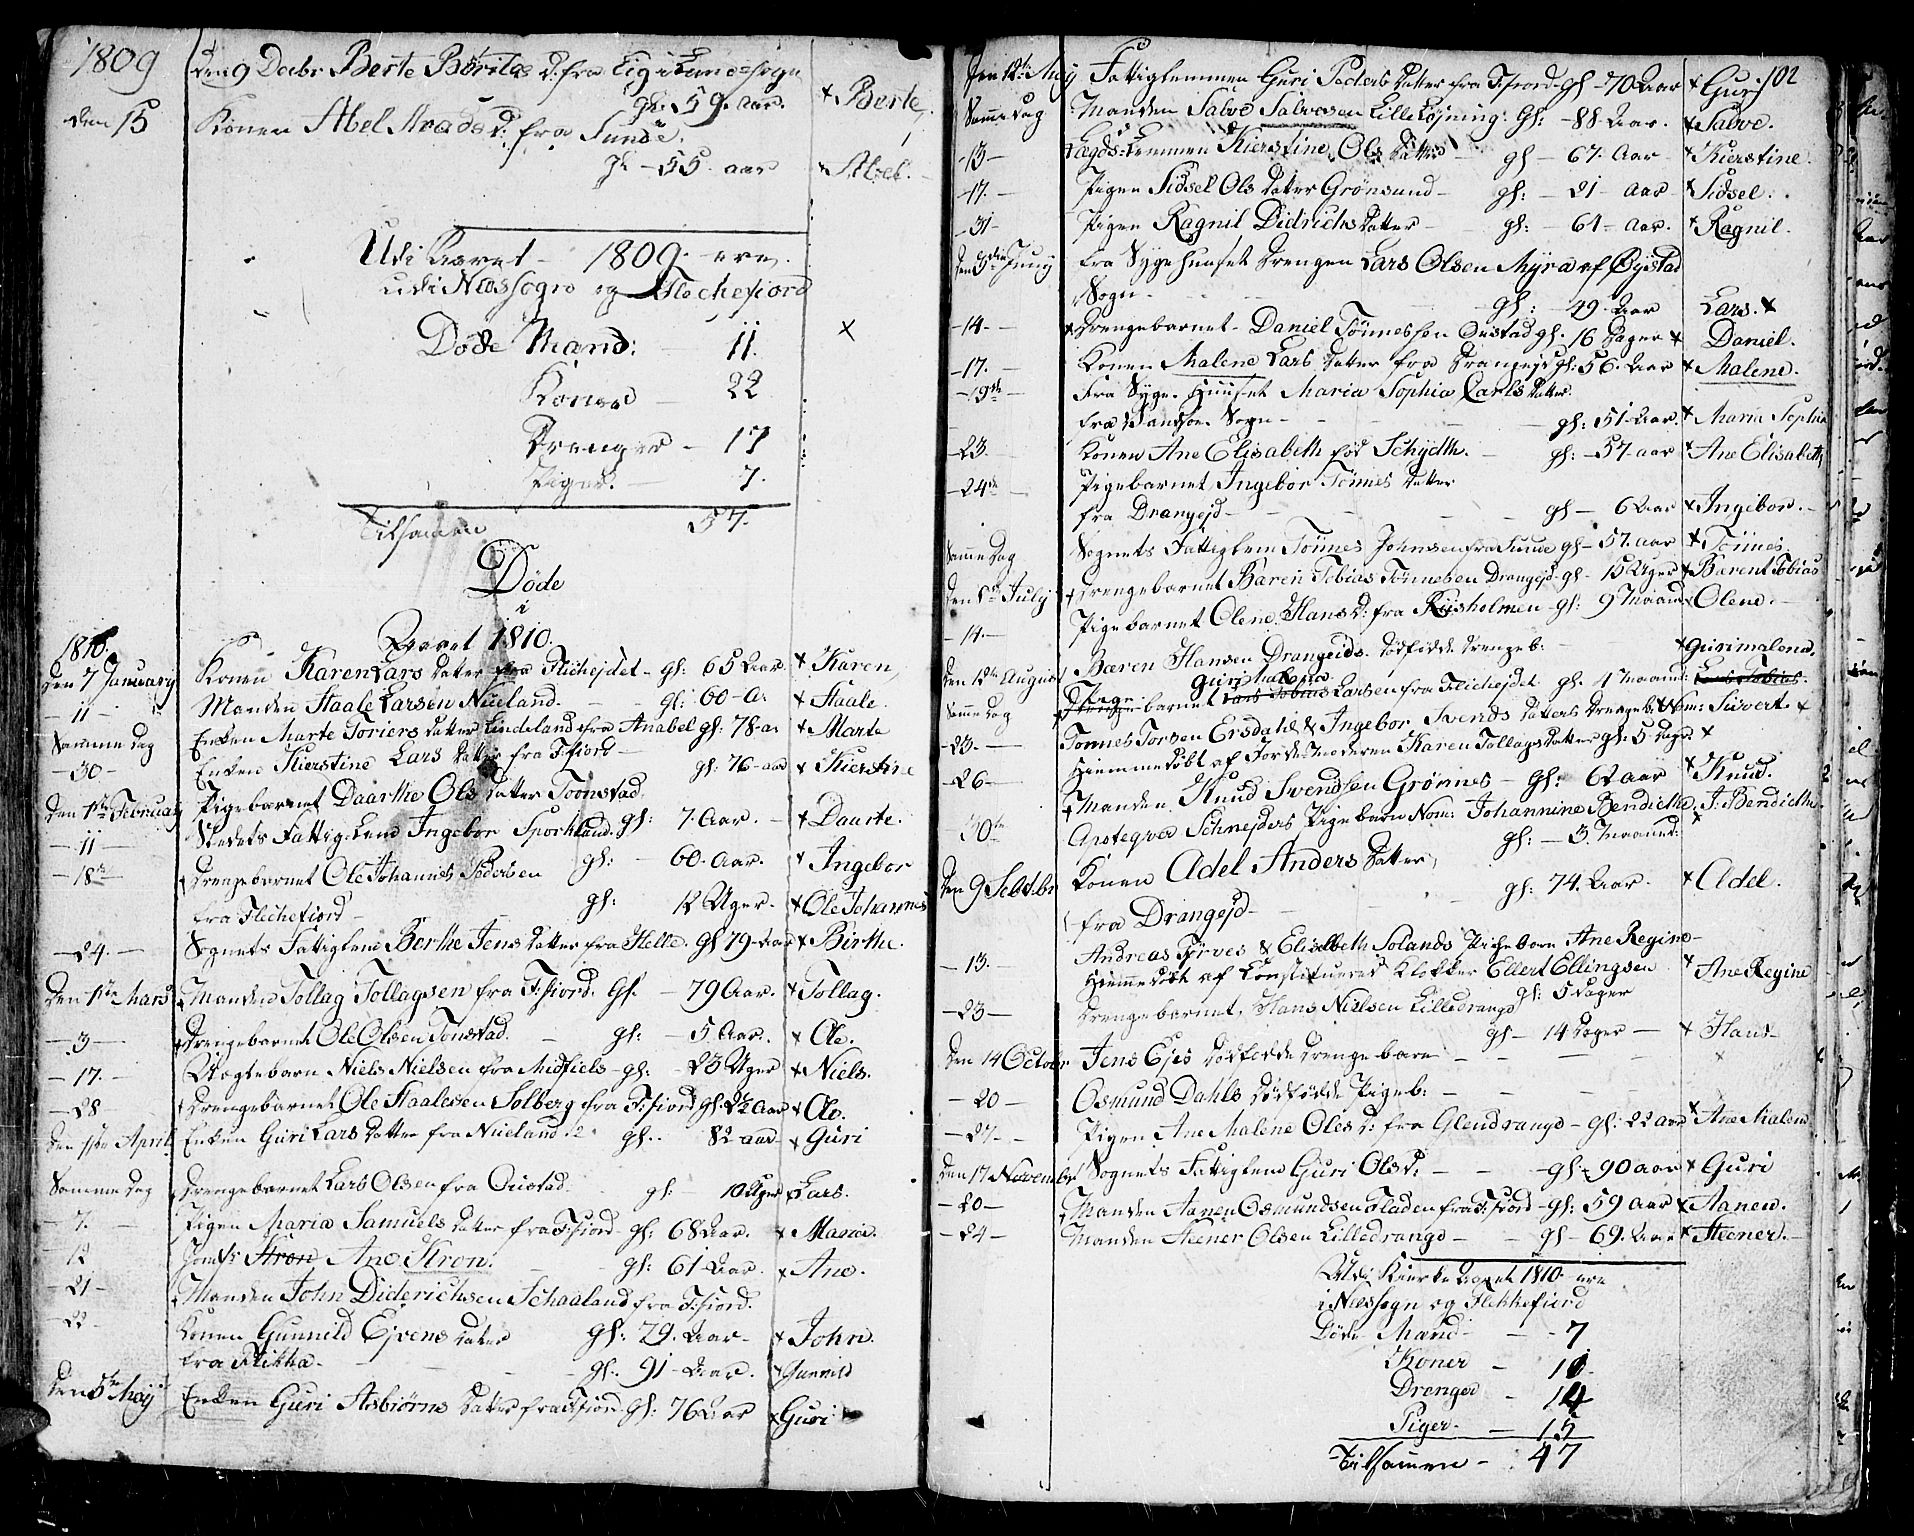 1809 den 9 Decbr Berte Börilds d: fra Eig i Lunde sogn
gl: 59. aar. × Berte.
den 15 Konen Abel Mrads d: fra Sunde.
gl – 55. aar × Abel.
Udi Aaret – 1809. ere
udi Næssogn og Flechefiord
Døde Mænd: – 11. ×
Koner – 22
Drenger – 17
Piger. – 7.
Tilsamen 57.
Døde
i
Aaret 1810.
1810.
den 7 January Konen Karen Lars datter fra Flichejdet – gl: 65 Aar × Karen,
– 11 – Manden Staale Larsen Nüeland. – gl: 60 – a: × Staale.
Samme dag Enken Marte Toriers datter Lindeland fra Anabel gl: 78 a: × Marte
– 30 – Enken Kierstine Lars datter fra F:fiord – gl: 76 – aar × Kierstine
den 1ste February Pigebarnet Daarthe Ols datter Tonstad
gl: 7. Aar. – × Daarte.
– 11 – Stedets Fattig-Lem Ingebor Sporkland.
gl: – 60. Aar. × Ingebor
– 18de Drengebarnet Ole Johannes Pedersen
fra Flechefiord – gl: 12 Uger. – × Ole Johannes
– 24. – Sognets Fattiglem Berthe Jens datter fra Helle. gl 79 – Aar × Birthe.
den 1ste Mars Manden Tollag Tollagsen fra F:fiord. gl. – 79 Aar. × Tollag.
– 3 – Drengebarnet Ole Olsen Tonstad. – gl: – 5 Aar. × Ole.
– 17. – Uægtebarn Niels Nielsen fra Midfiels – gl: – 23 Uger × Niels.
– 28 Drengebarnet Ole Staalesen Solberg fra F:fiord gl: 2½ Aar × Ole.
den 1ste April Enken Guri Lars datter fra Nüeland gl.. 82 aar – × Guri
Samme dag Drengebarnet Lars Olsen fra Oustad. gl: – 10 Uger × Lars.
– 7. – Pigen Maria Samuels datter fra F:fiord – gl: 68 Aar. × Maria.
– 12 Jomfr Kron Ane Kron. – gl: 61 – Aar. × Ane.
– 21 – Manden John Diderichsen Schaaland fra F:fiord.
gl: 29. Aar – × John.
22 – Konen Gunnild Ejvens datter
fra Flikka – gl: 91 – Aar. × Gunnild
den 5te Maÿ Enken Guri Asbiørns datter fra F:fiord – gl: 76 Aar × Guri
102
Den 12te Maÿ Fattiglemmen Guri Peders datter fra F:fiord – gl – 70 Aar × Guri
Samme dag Manden Salve Salvesen Lille Løyning. gl: – 88 – Aar. × Salve.
– 13 – Lægds-Lemmen Kierstine Ols datter – gl – 67. Aar × Kierstine.
– 17. – Pigen Sidsel Ols datter Grønsund – gl: – 21 – Aar × Sidsel.
– 31 – Pigen Ragnil Didrichs datter – gl: – 61 – Aar. × Ragnil.
Den 5te Juny fra Sygehuuset Drengen Lars Olsen Mÿra af Øystad
Sogn – gl: – 49 – Aar Lars. ×
– 14. – × Drengebarnet – Daniel Tönnessen Oustad gl. 16 Dager × Daniel.
– 17. – Konen Malene Lars datter fra Drangejd gl: 56. Aar × Malene.
– 19de – Fra Syge-Huuset Maria Sophia Carls datter
fra Vansøe Sogn – gl: 51 – Aar. × Maria Sophia
– 23. Konen Ane Elisabeth fød Schÿdth. – gl: – 57 – aar × Ane Elisabeth
– 24de – Pigebarnet Ingebor Tönnes datter
fra Drangejd – gl – 6 Aar × Ingebor.
Samme dag Sognets Fattiglem Tönnes Johnsen fra Sunde gl – 57. aar × Tönnes.
den 1ste July Drengebarnet Baren Tobias Tönnesen Drangejd – gl – 15 Uger × Barent Tobias
– 11. – Pigebarnet Olene Hans d: fra Rüsholmen – gl: 9 Maan × Olene. –
den 12te August Baren Hansen Drangeids. dødfødde Drengeb: – × Gurimalena.
Samme dag Drenge Pige barnet Lars Tobias Guri Malena Larsen fra Flichejdet gl: 1 Maaned: Lars Tobias.
– 23. – Tonnes Torsen Ersdahl & Ingebor Svends datters Drengeb: Nom: Sivert. ×
Hiemmedøbt af Jordemoderen Karen Tollags datter gl: 5 Dage ×
– 26 – Manden Knud Svendsen Grönnes – gl: 62 aar × Knud.
30te Apoteqver Schneÿders Pigebarn Nom: Johannine Bendicthe, J: Bendicthe.
gl: – 3. Maaned: ×
den 9 Sebtbr Konen Adel Anders datter,
fra Drangejd – gl: 74. Aar. × Adel.
– 13. – Andreas Törves & Elisabeth Solands Pigebarn Ane Regine –
Hiemmedøbt af Constitueret Klokker Ellert Ellingsen × Ane Regine
gl: 5 Dager
– 23 – Drengebarnet, Hans Nielsen Lilledrangd
gl – 14 Dager – × Hans
den 14 October Jens Ejes dødfødde Drengebarn – ×
– 20 – Osmund Dahls dødfødde Pigeb: –
– 27. – Pigen Ane Malene Oles d: fra Glendrangd – gl: 22 aar × Ane Malene
den 17 November Sognets Fattiglem Guri Ols d. – gl – 90 aar × Guri
– 20 – Manden Aanen Osmundsen Fladen fra F:fiord – gl: 59 aar × Aanen.
– 24 – Manden Steener Olsen Lilledrangd – gl – 69. Aar × Steener. –
Udi Kierke Aaret 1810 ere
i Næssogn og Flekkefiord
Døde Mænd – 7
Koner – 10
Drenger – 14
Piger. – 15
Tilsamen – 47